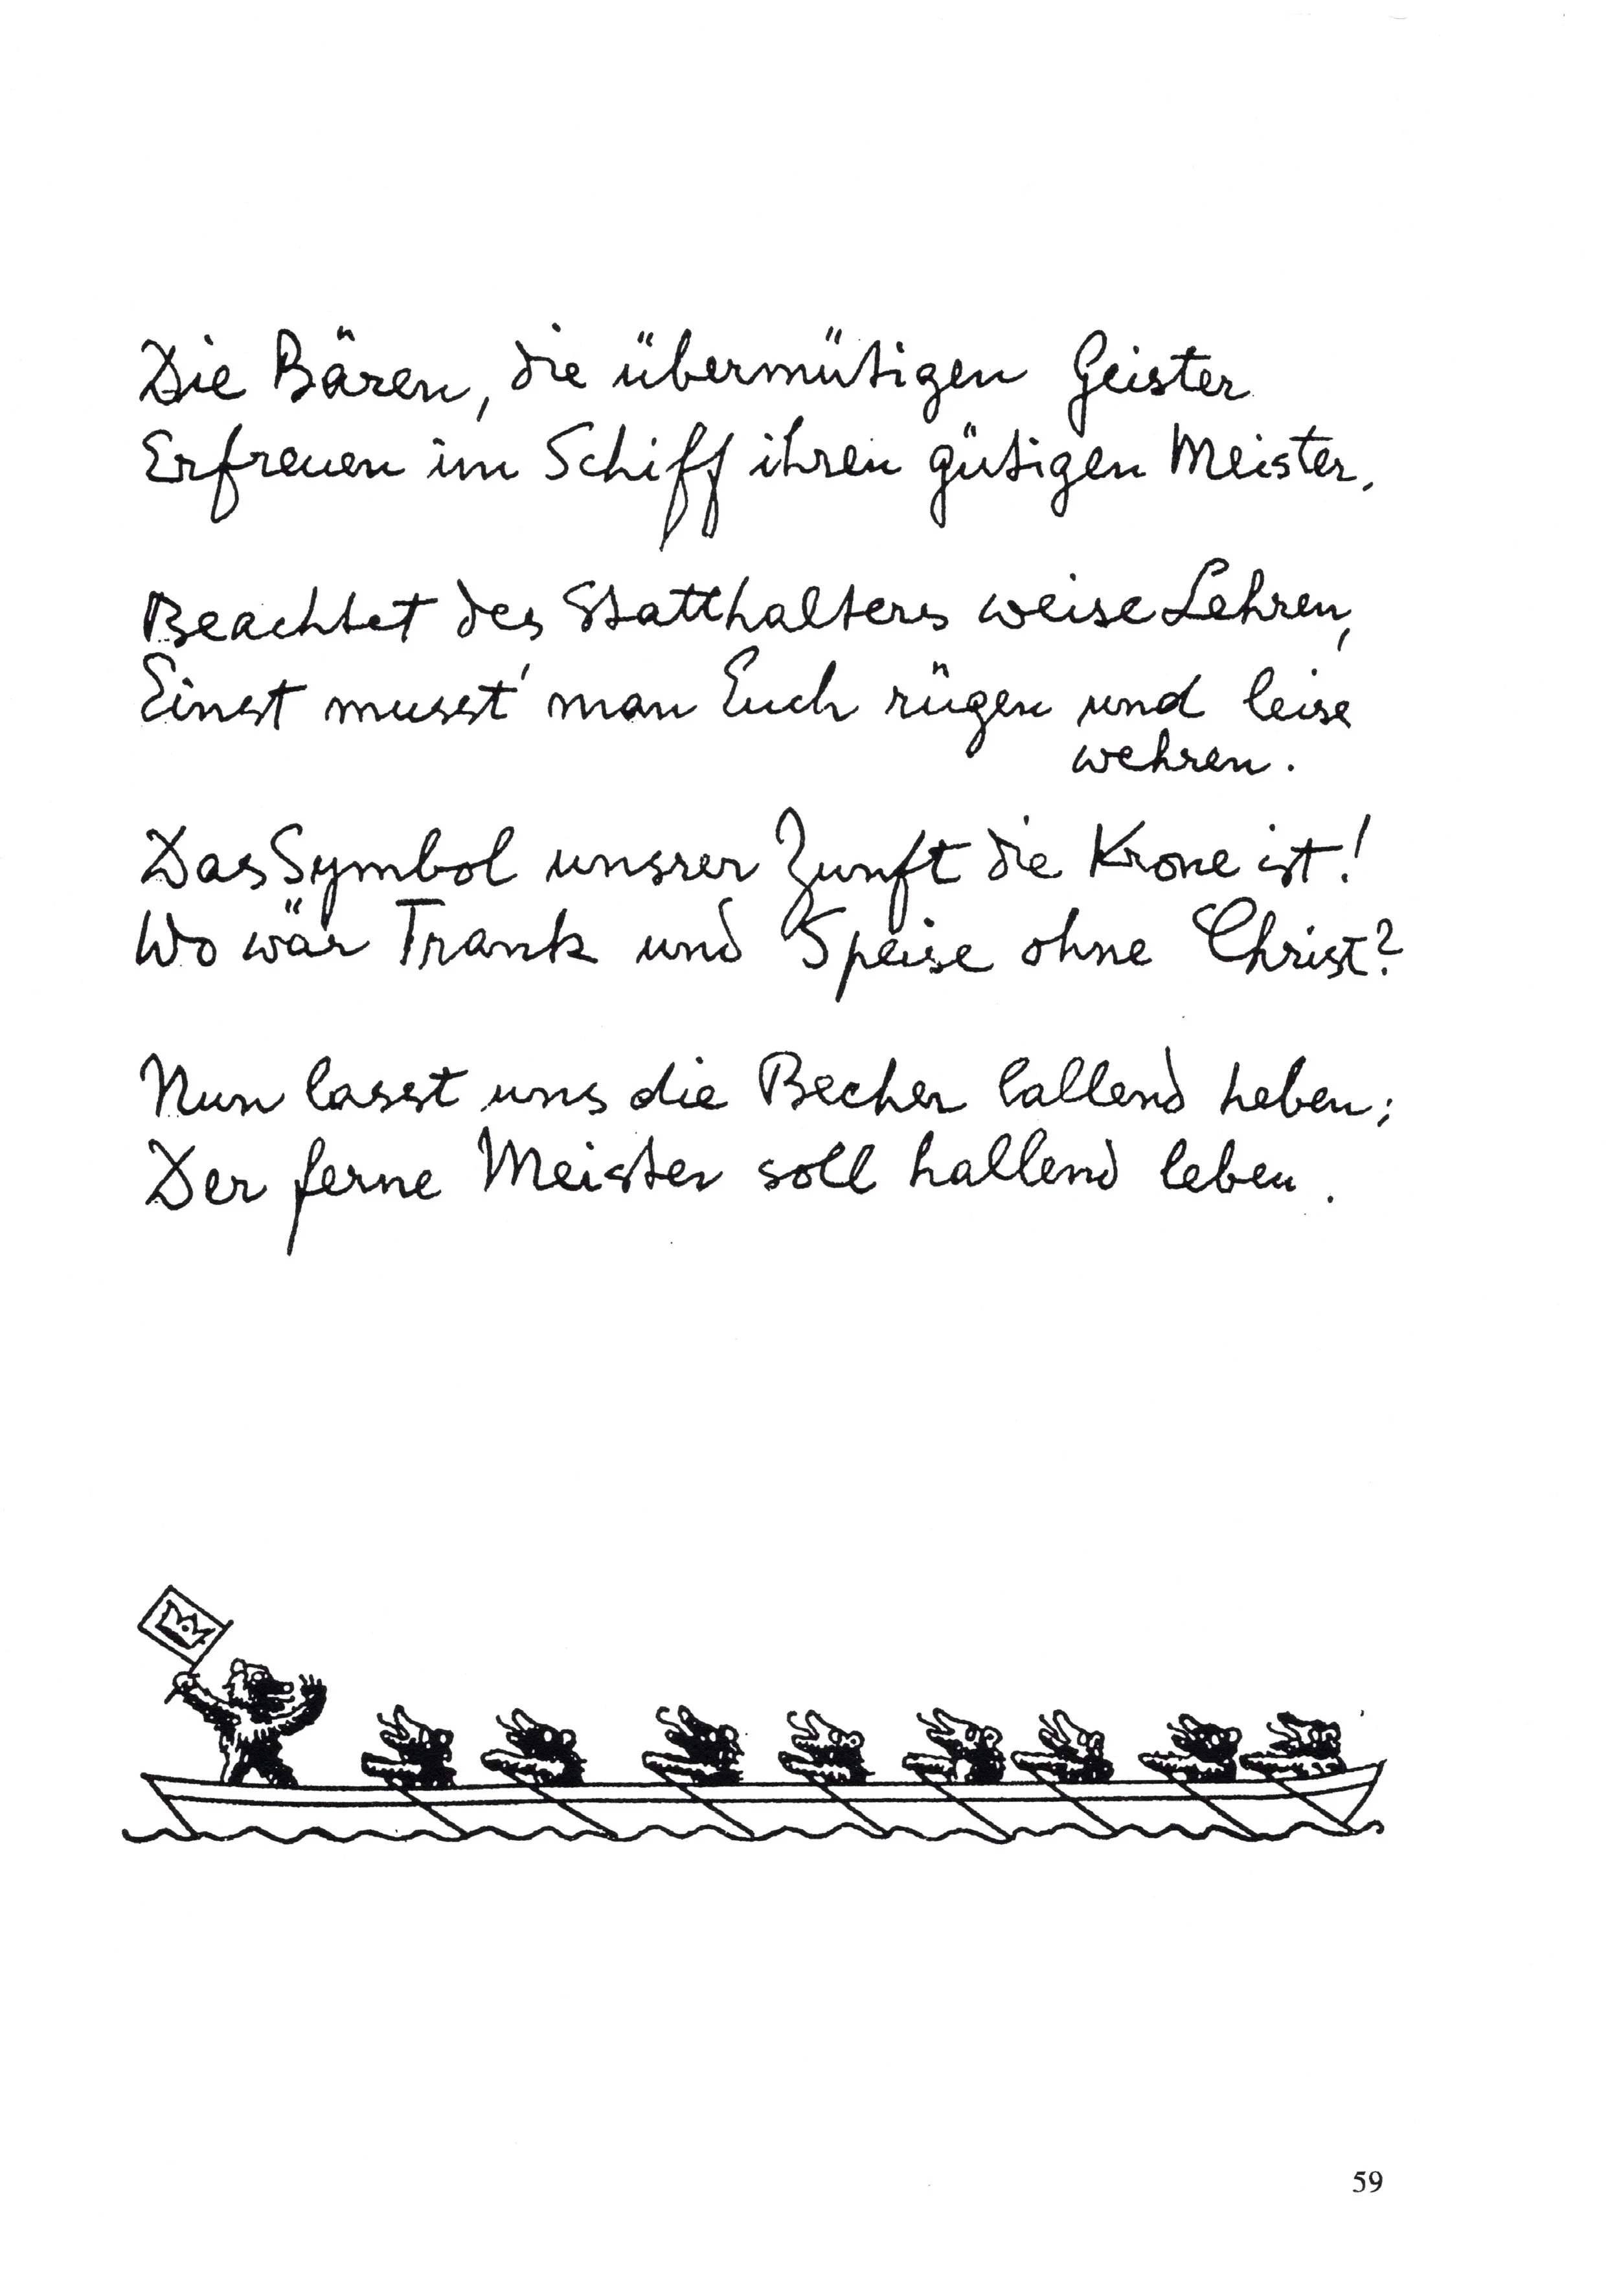 Die Bären, die übermütigen Geister
Erfreuen im Schiff ihren gütigen Meister.
Beachtet des Statthalters weise Lehren,
Einst musst' man Euch rügen und leise
wehren.
Das Symbol unsrer Zunft die Krone ist!
Wo wär Trank und Speise ohne Christ?
Nun lasst uns die Becher lallend heben;
Der ferne Meister soll hallend leben.
59